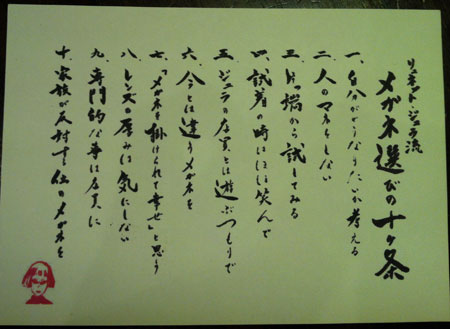 リュネット・ジュラ流
メガネ選びの十ヶ条
一、自分がどうなりたいか考える
二、人のマネをしない
三、片っ端から試してみる
四、試着の時はほほ笑んで
五、ジュラの店員とは遊ぶつもりで
六、今とは違うメガネを
七、「メガネを掛けられて幸せ」と思う
八、レンズの厚みは気にしない
九、専門的な事は店員に
十、家族が反対する位のメガネを